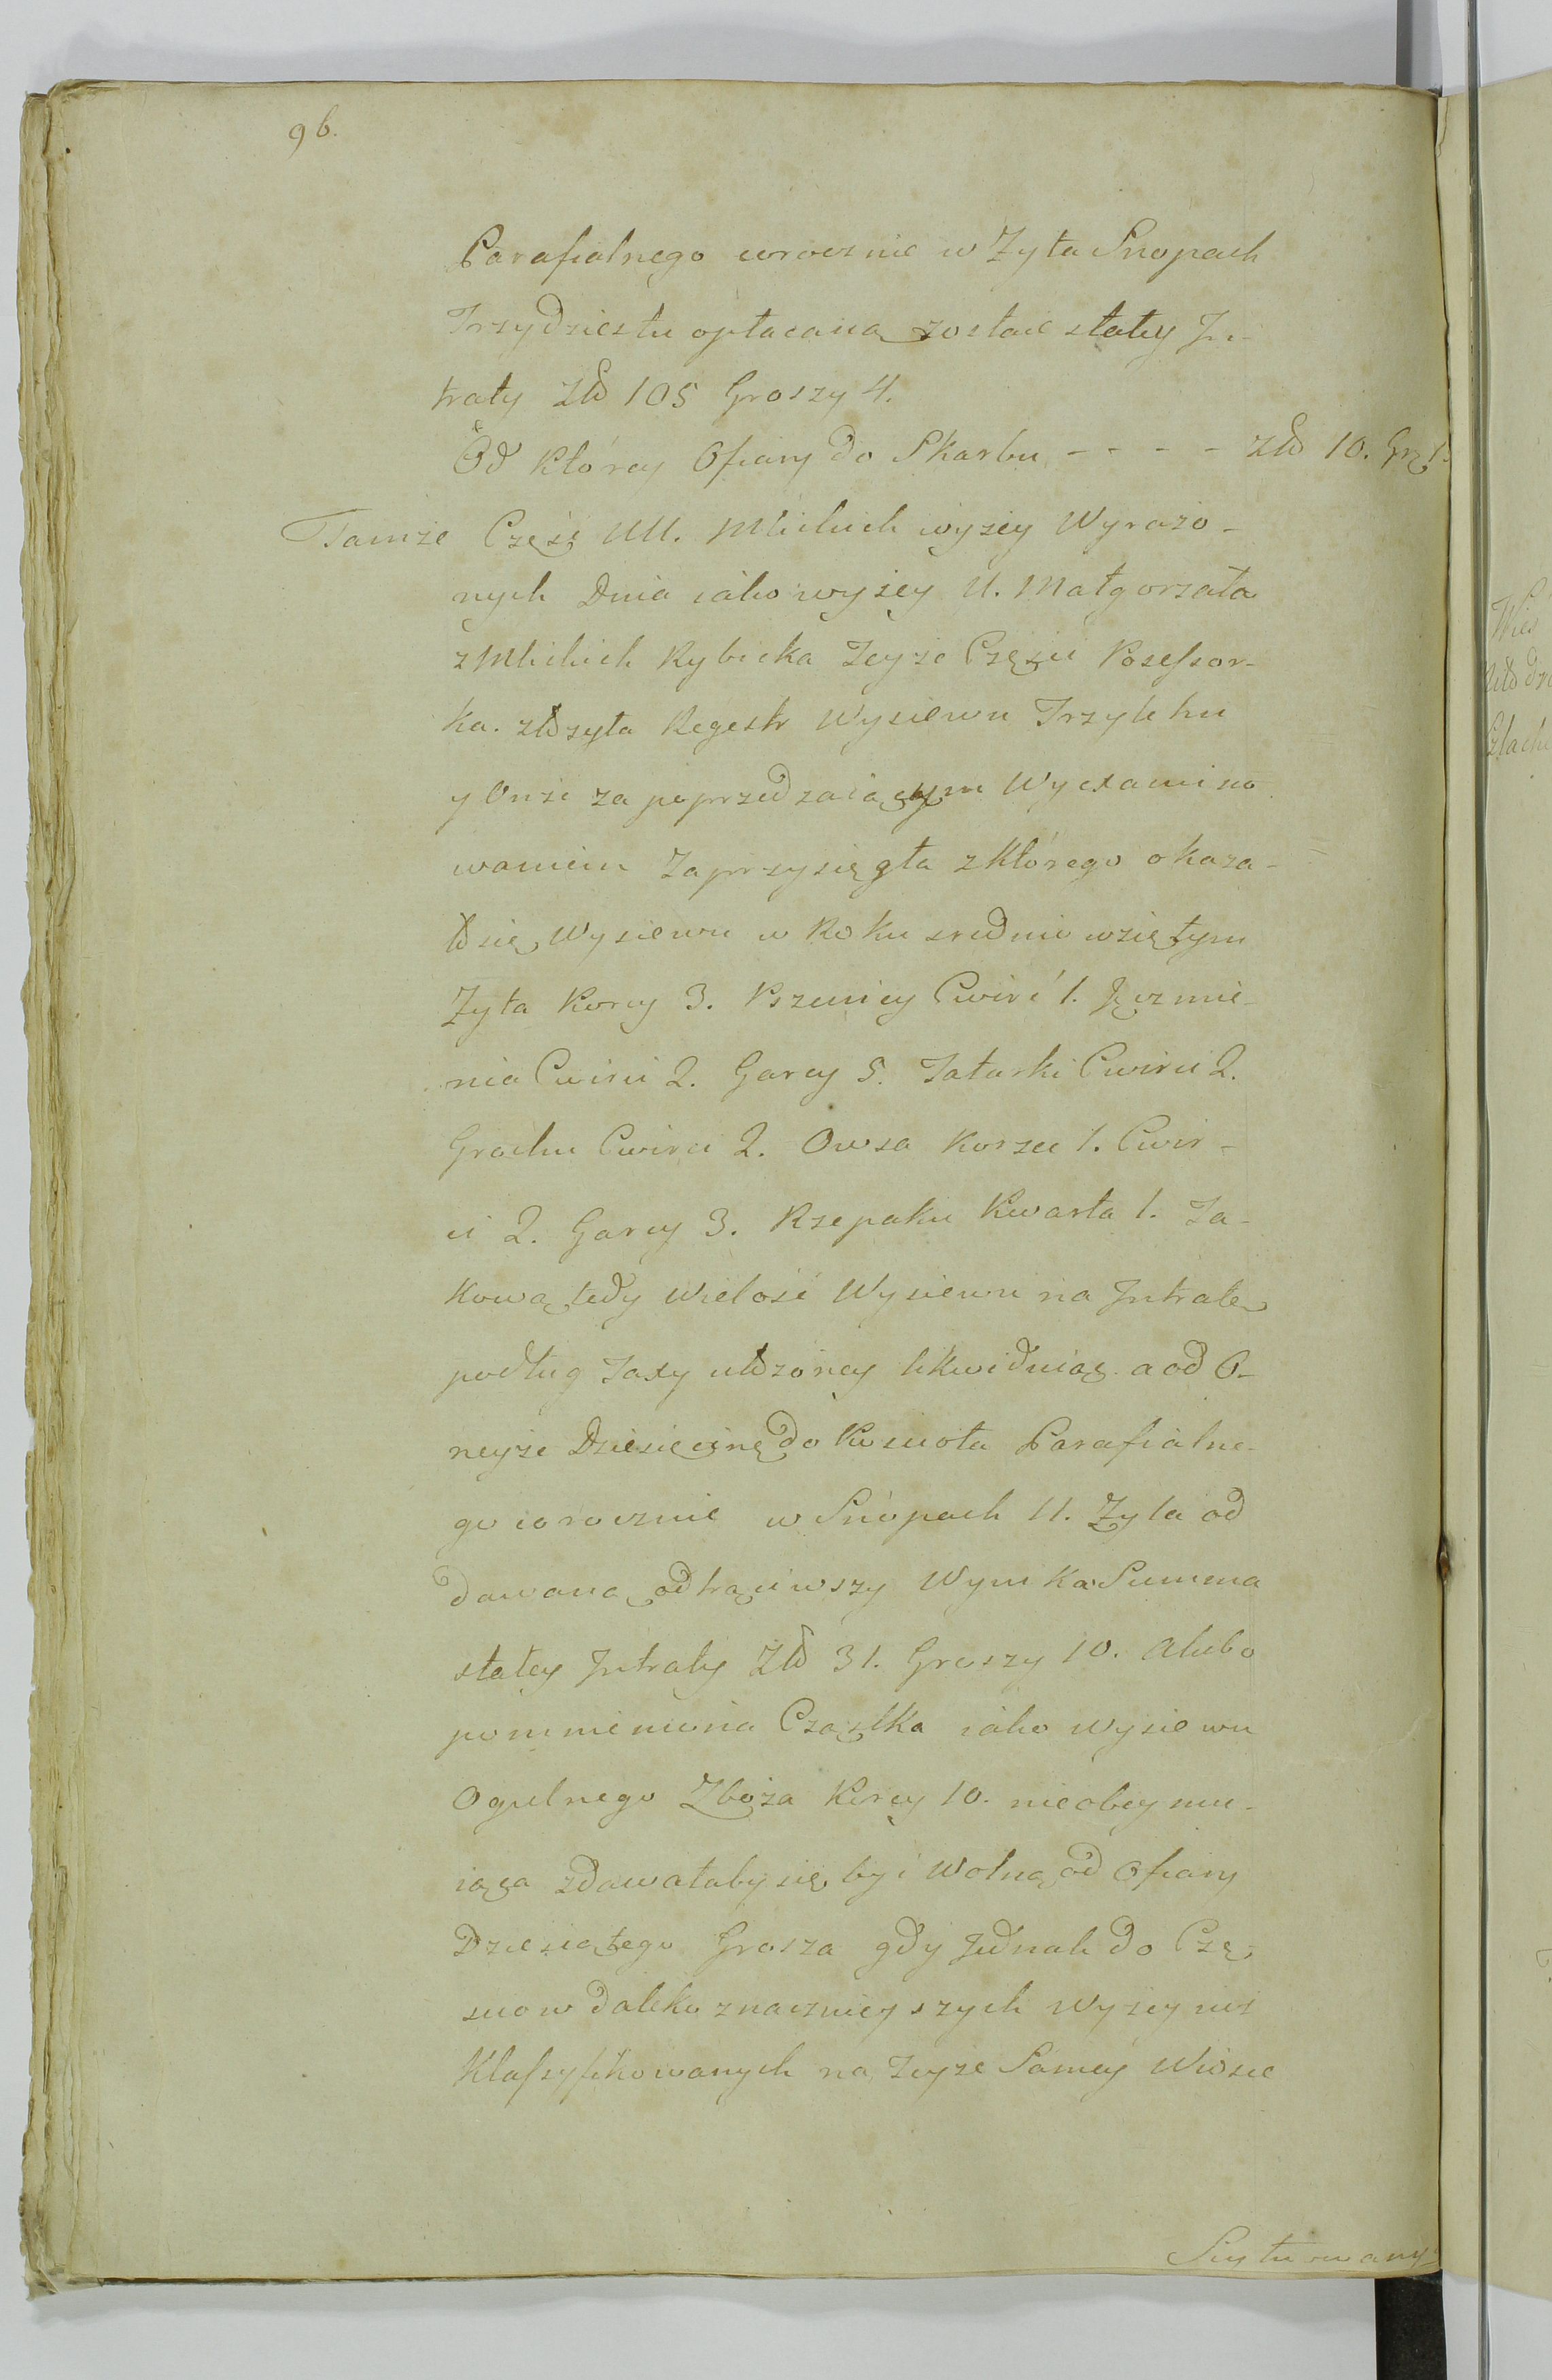 96.
Parafialnego corocznie w Zyta Snopach
Trzydziestu opłacaną zostaie stałey In-
traty Zło 105 Groszy 4.
Od którey Ofiary do Skarbu - - - - Zło 10. Gr 1.
Tamże Część UU. Mlickich wyżey Wyrażo-
nych Dnia iako wyżey U. Małgorzata
z Mlickich Rybicka Teyże Części Possessor-
ka. złożyła Regestr Wysiewu Trzyletni
y Onże za poprzedzaiącym Wyexamino
waniem Zaprzysięgła z którego okaza-
ło się Wysiewu w Roku srednio wziętym
Zyta Korcy 3. Pszenicy Cwierć 1. Jęczmie-
nia Cwierci 2. Garcy 5. Tatarki Cwierci 2.
Grochu Cwierci 2. Owsa Korzec 1. Cwier-
ci 2. Garcy 3. Rzepaku Kwarta 1. Ta-
kową tedy Wielość Wysiewu na Intratę
podług Taxy ułożoney likwiduiąc a od O-
neyże Dziesięcinę do Kościoła Parafialne-
go corocznie w Snopach 11. Zyta od
dawaną odtrąciwszy Wynika Summa
stałey Intraty Zło 31. Groszy 10. Alubo
pommieniona Cząstka iako Wysiewu
Ogulnego Zboża Korcy 10. nieobeymu-
iąca zdawałaby się być Wolną od Ofiary
Dziesiątego Grosza gdy Jednak do Czę-
sciow daleko znacznieyszych Wyżey iuż
Klassyfikowanych na Teyże Samey Wiosce
Scytuowany
Wieś